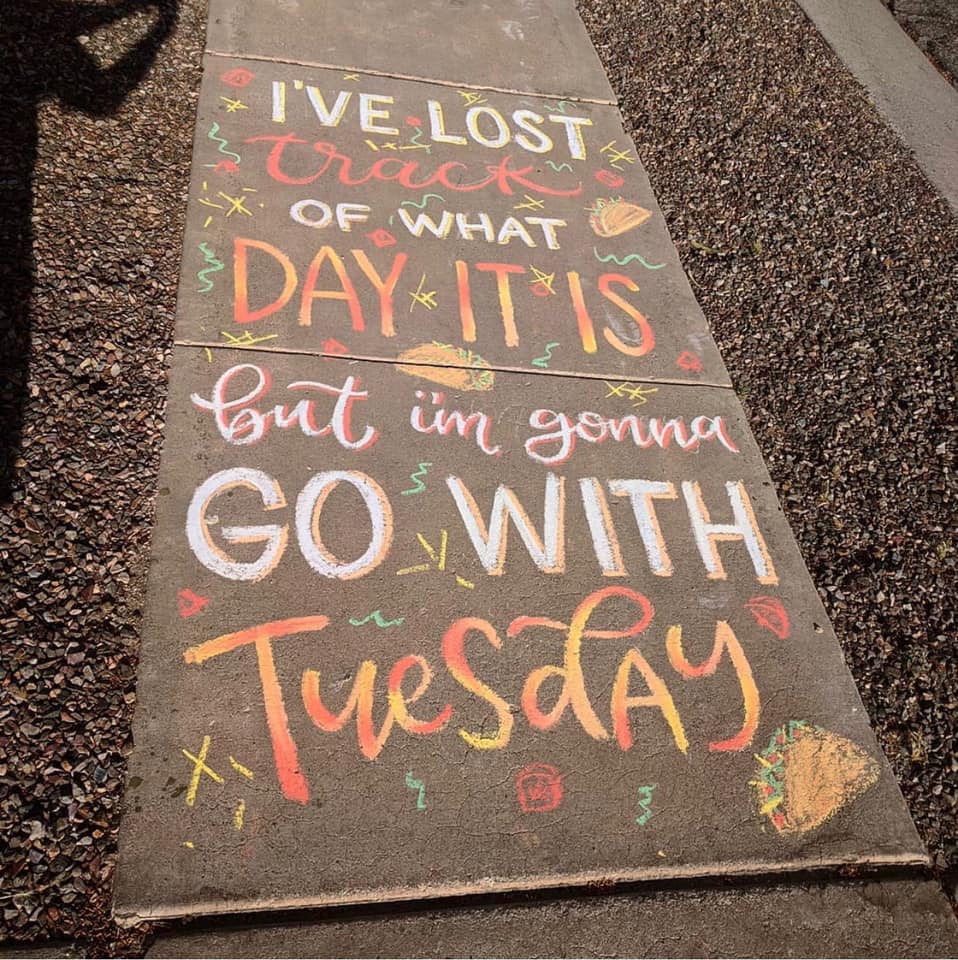 I'VE LOST
track
OF WHAT
DAY IT IS
but i'm gonna
GO WITH
TuesdAy